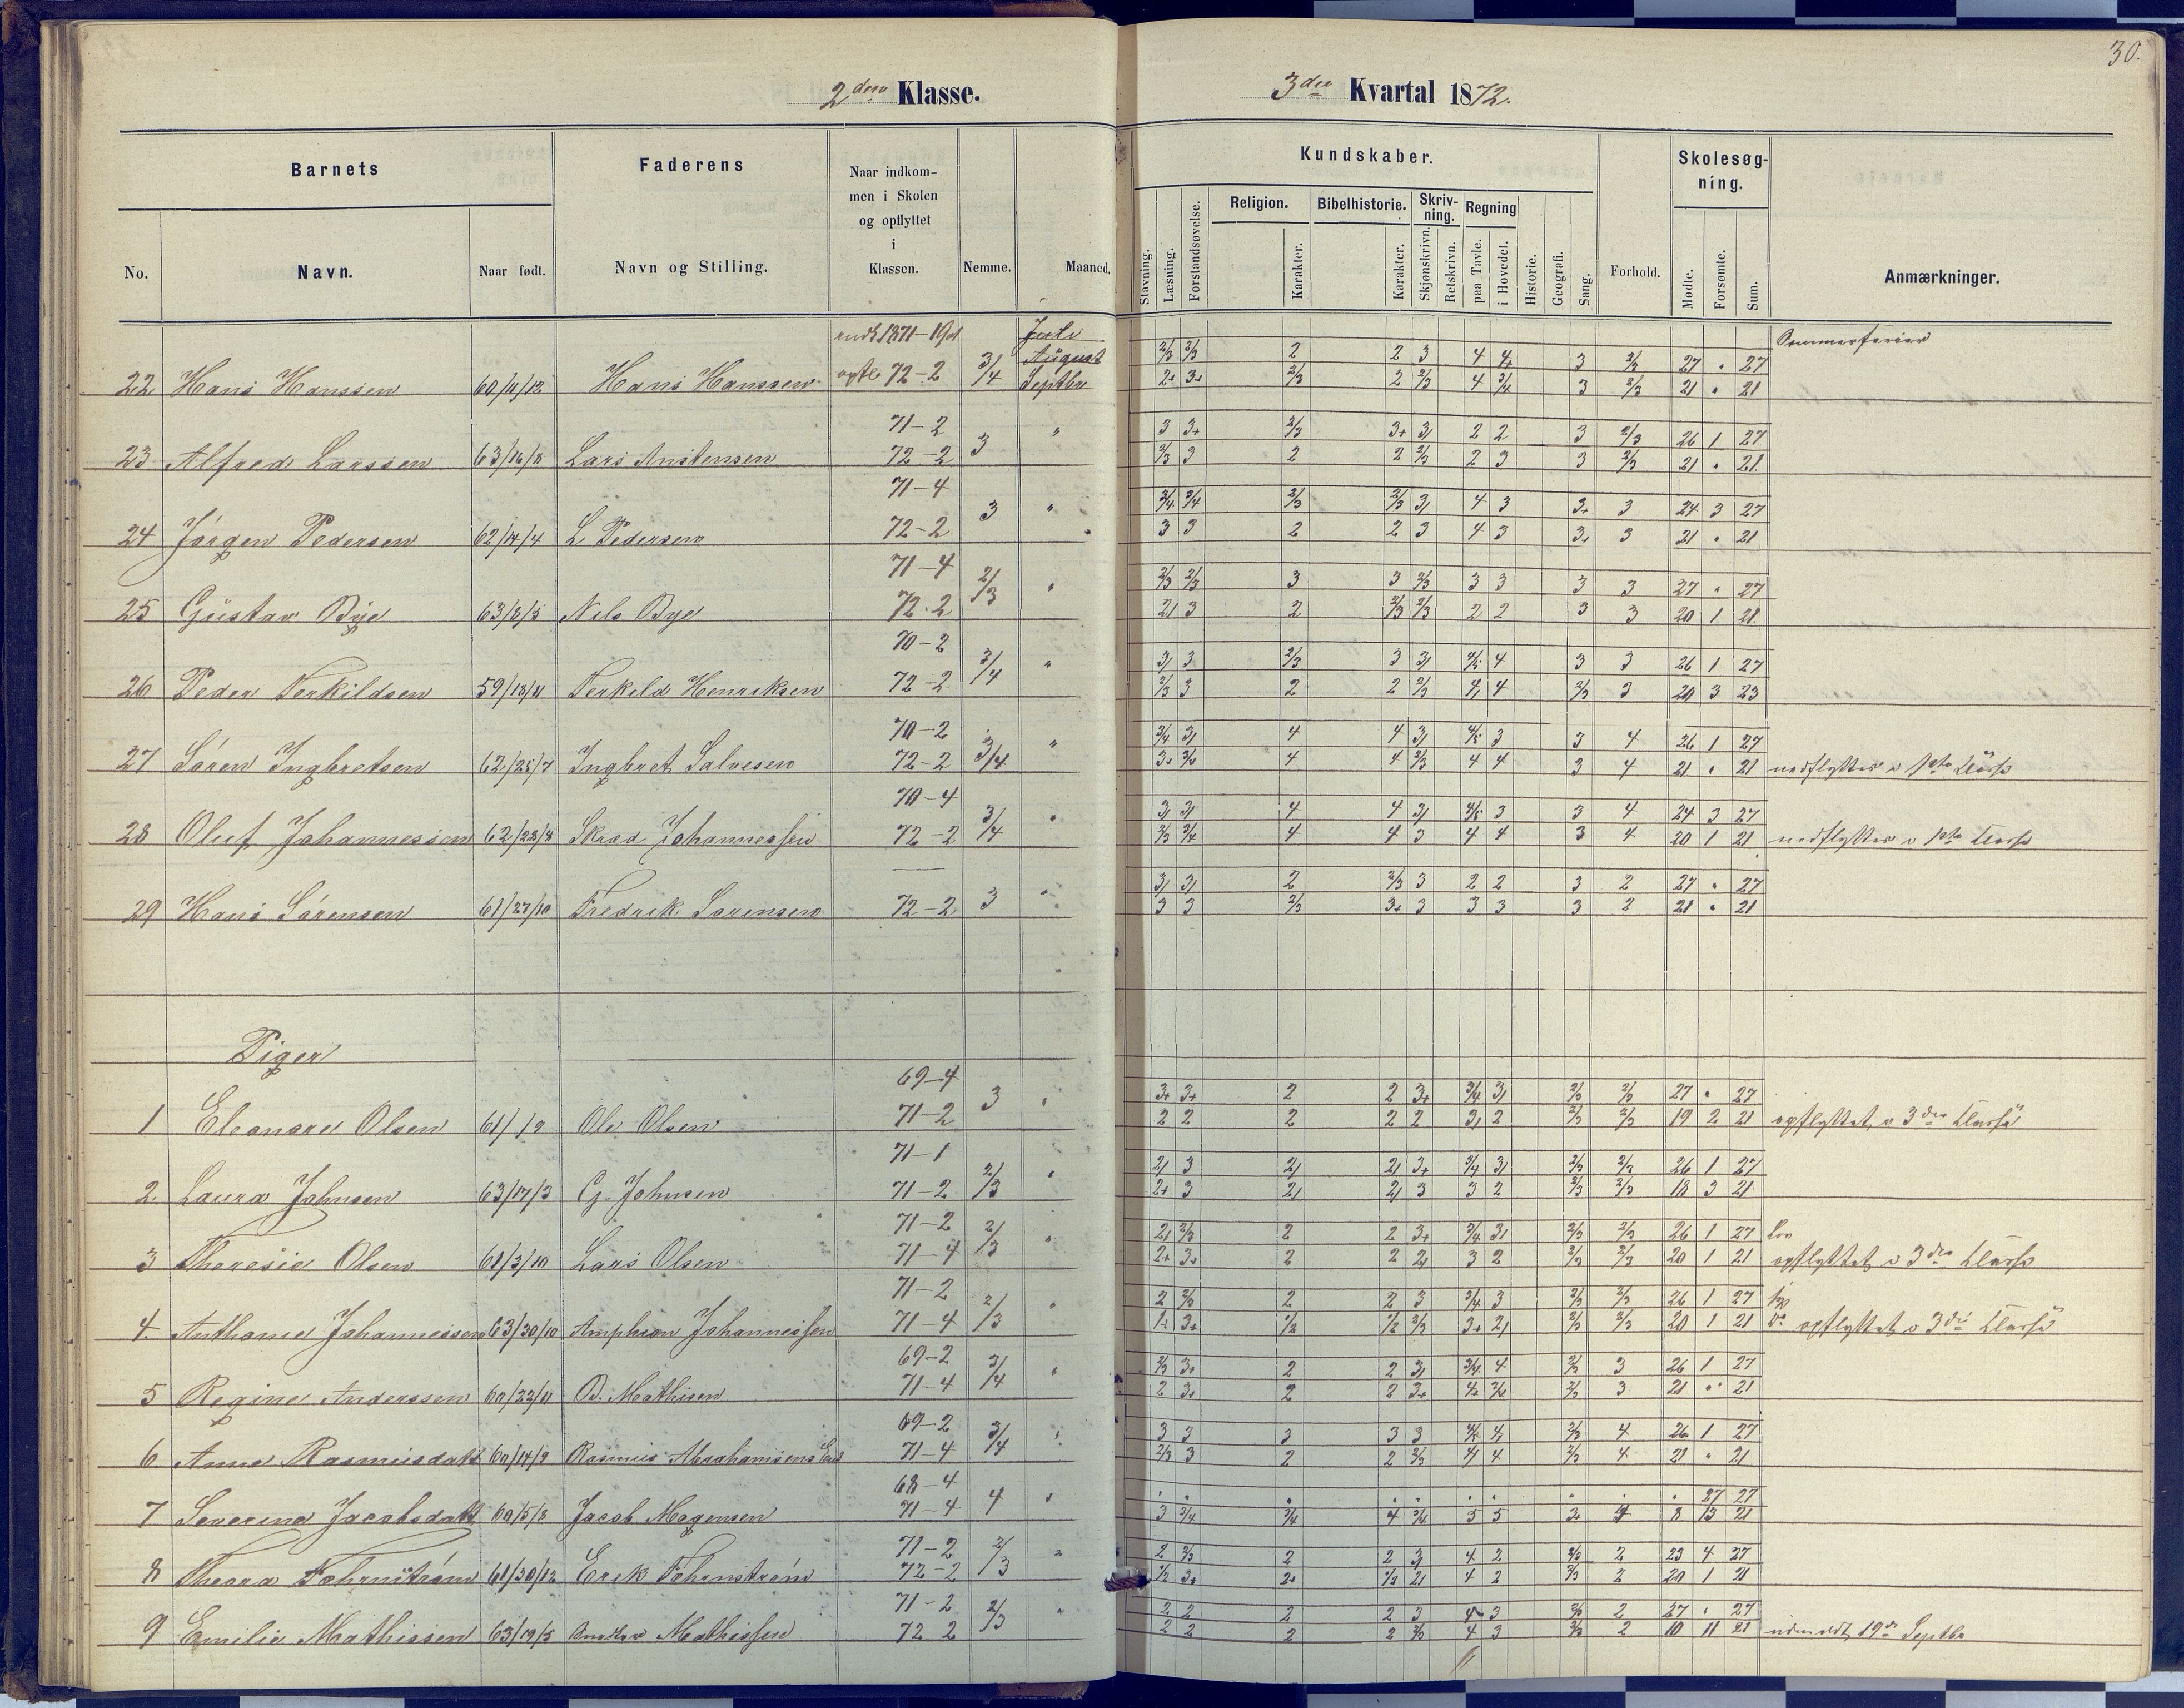 30.
2den Klasse.
3die Kvartal 1872.
Barnets
Faderens
Naar indkom-
men i Skolen
og opflyttet
i
Klassen.
Nemme.
Maaned.
No.
Navn.
Naar født.
Navn og Stilling.
Kundskaber.
Skolesøg-
ning.
Religion.
Bibelhistorie.
Skriv-
ning.
Regning
Stavning.
Læsning.
Forstandsøvelse.
Karakter.
Karakter.
Skjønskrivn.
Retskrivn.
paa Tavle.
i Hovedet.
Historie.
Geografi.
Sang.
Forhold.
Mødte.
Forsømte.
Sum.
Anmærkninger.
1871 Juli Sommerferier
August 2/3 2/3 2 2 3 4 4+ 3 2/3 27 " 27
22 Hans Hanssen 60/11/12 Hans Hanssen 72-2 3/4 Septbr 2+ 3+ 2/3 2 2/3 4 3/4 3 2/3 21 " 21
71-2 " 3 3+ 2/3 3+ 3/ 2 2 3 2/3 26 1 27
23 Alfred Larssen 63/16/8 Lars Anstensen 72-2 3 2/3 3 2 2 2/3 2 3 3 2/3 21 " 21
71-4 " 3/4 3/4 2/3 2/3 3/ 4 3 3+ 3 24 3 27
24 Jörgen Pedersen 62/14/4 L. Pedersen 72-2 3 3 3 2 2 3 4 3 3+ 3 21 " 21
71-4 " 2/3 2/3 3 3 2/3 3 3 3 3 27 " 27
25 Gustav Bye 63/8/5 Nils Bye 72-2 2/3 2/ 3 2 2/3 2/3 2 2 3 3 20 1 21
70-2 " 3/ 3 2/3 3 3/ 4/5 4 3 3 26 1 27
26 Peder Terkildsen 59/13/11 Terkild Henriksen 72-2 3/4 2/3 3 2 2 2/3 4/ 4 2/3 3 20 3 23
70-2 " 3/4 3/ 4 4 3/ 4/5 3 3 4 26 1 27
27 Sören Ingbretsen 62/25/7 Ingbret Salvesen 72-2 3/4 3+ 3/4 4 4 2/3 4 4 3 4 21 " 21 nedflyttes i 1ste Klasse
70-4 " 3/ 3/ 4 4 3/ 4/5 3 3 4 24 3 27
28 Oluf Johannessen 62/28/8 Johannessen 72-2 3/4 2/3 3/4 4 4 3 4 4 3 4 20 1 21 nedflyttes i 1ste Klasse
" 3/ 3/ 2 2/3 3 2 2 3 2 27 " 27
29 Hans Sörensen 61/27/10 Fredrik Sørensen 72-2 3 3 3 2/3 3+ 3 3 3 3 2 21 " 21
Piger
69-4 " 3+ 3+ 2 2 3+ 3/4 3/ 2/3 2/3 27 " 27
1 Eleanore Olsen 61/ /9 Ole Olsen 71-2 3 2 2 2 2 2 3/ 2 2/3 2/3 19 2 21 opflyttet i 3die Klasse
71-1 " 2/ 3 2/ 2/ 3+ 3/4 3/ 2/3 2/3 26 1 27
2. Laura Johnsen 63/17/3 G. Johnsen 71-2 2/3 2+ 3 2/ 2/ 3 3 2 2/3 2/3 18 3 21
71-2 " 2/ 2/3 2 2 3+ 3/4 3/ 2/3 2/3 26 1 27
3 Theresie Olsen 61/3/10 Lars Olsen 71-4 2/3 2+ 3+ 2 2 2/ 3 2 2/3 2/3 20 1 21 opflyttet i 3die Klasse
71-2 " 2 2/3 2 2 3 3/4 3 2/3 2/3 26 1 27
4. Anthonie Johannessen 63/30/10 Amphion Johannessen 71-4 2/3 1+ 3+ 1/2 1/2 2/3 3+ 2/ 2/3 2/3 20 1 21 opflyttet i 3die Klasse
69-2 " 2/3 3+ 2 2 3/ 3/4 4 2/3 3 26 1 27
5 Regine Anderssen 60/23/11 B. Mathisen 71-4 3/4 2 3+ 2 2 3+ 4+ 3/4 2/3 3 21 " 21
69-2 " 3 3 3 3 3 4/5 4/ 2/3 4 26 1 27
6. Anne Rasmusdatt. 60/14/9 Rasmus Abrahamsens 71-4 3/4 2/3 3 2 2 2/3 4/ 4 2/3 4 21 " 21
68-4 " 27 27
7 Severine Jacobsdatt. 60/5/8 Jacob Mogensen 71-4 4 3 3/4 3/4 4 3/4 5 5 3+ 4 8 13 21
71-2 " 2 2/3 2 2 3/ 4 2 2/3 2 23 4 27
8 Theora Fehrnström 61/30/12 Erik Fehrnström 72-2 2/3 1/2 3+ 2+ 1/2 2/ 4 2 2/3 2 20 1 21
71-2 " 2 2 2 2 3 4 3 2/3 2 27 " 27
9 Emilie Mathissen 63/19/5 Mathissen 72 2 2/3 2 2 2 2 2/3 4 3 2/3 2 10 11 21 udmeldt 19de Septbr